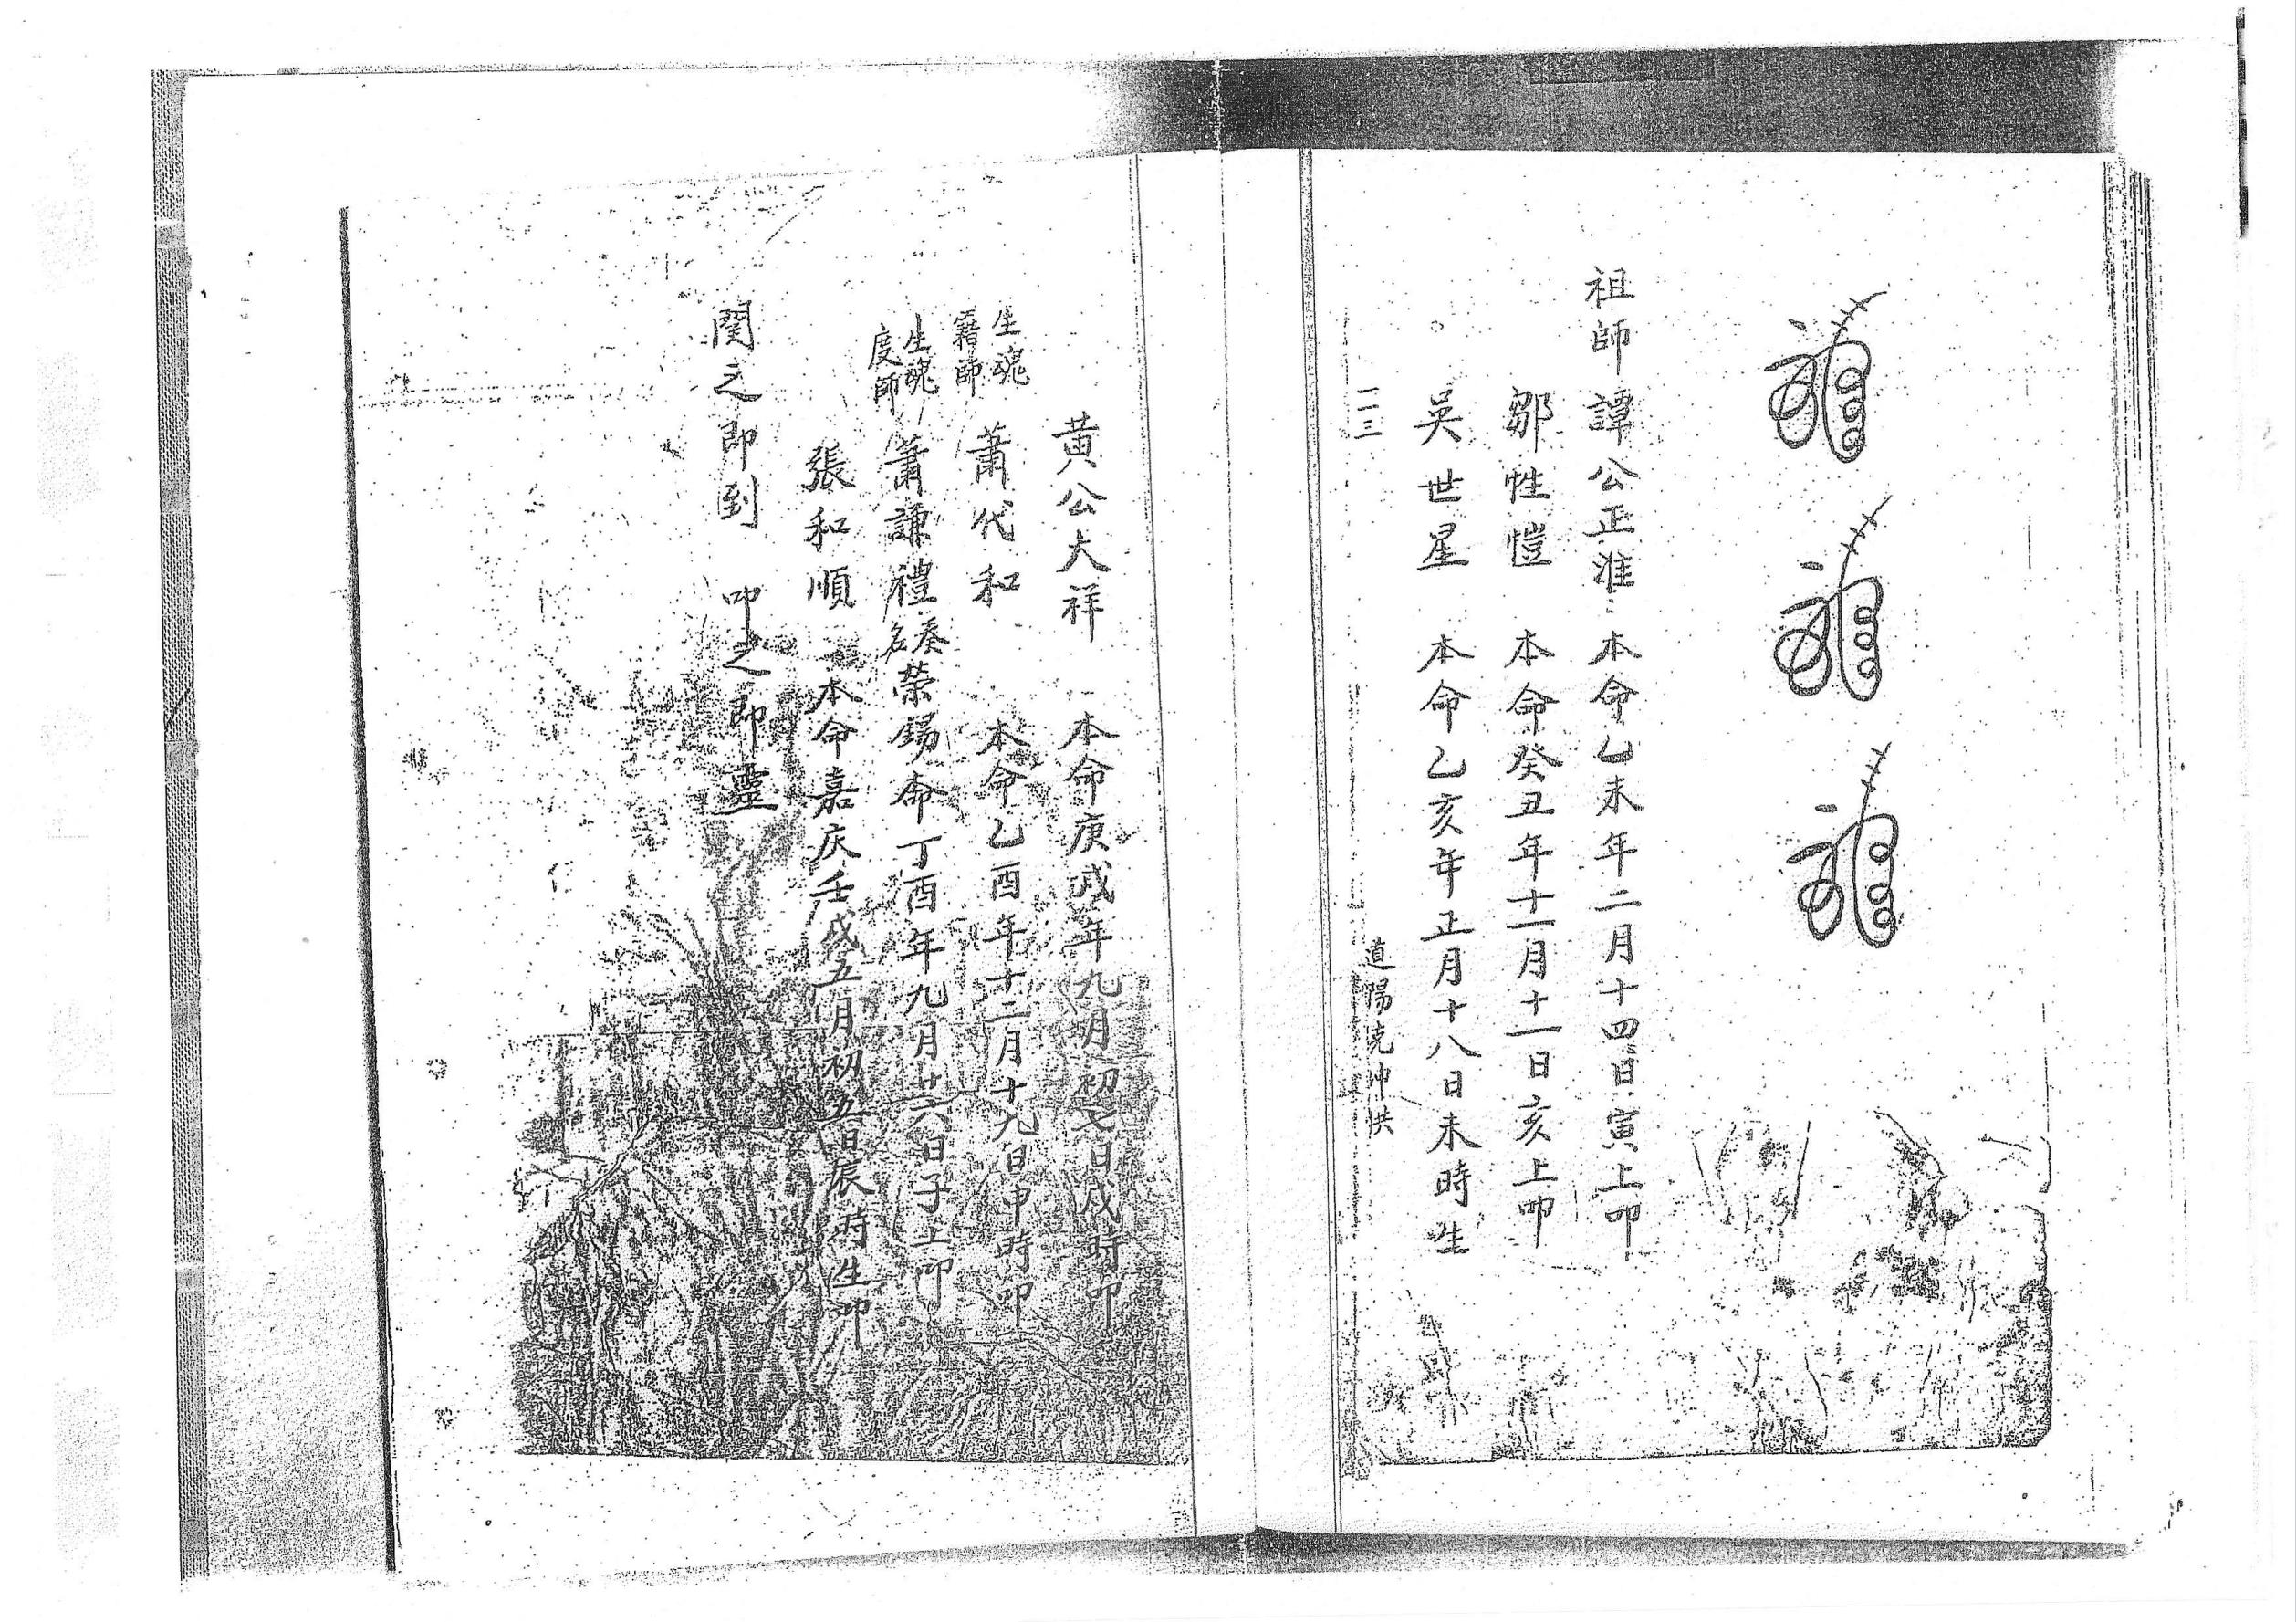 祖師譚公正淮 本命乙未年二月十四日寅上叩
鄒性愷 本命癸丑年十一月十一日亥上叩
吳世星 本命乙亥年正月十八日未時生
一二三
道陽克冲洪
黃公大祥 本命庚戌年九月初七日戌時叩
生魂籍師 蕭代和 本命乙酉年十二月十九日申時叩
生魂度師 蕭謙禮 奏名榮錫 本命丁酉年九月廿六日子上叩
張和順 本命嘉庆壬戌五月初五日辰時生叩
関之即到 叩之即靈